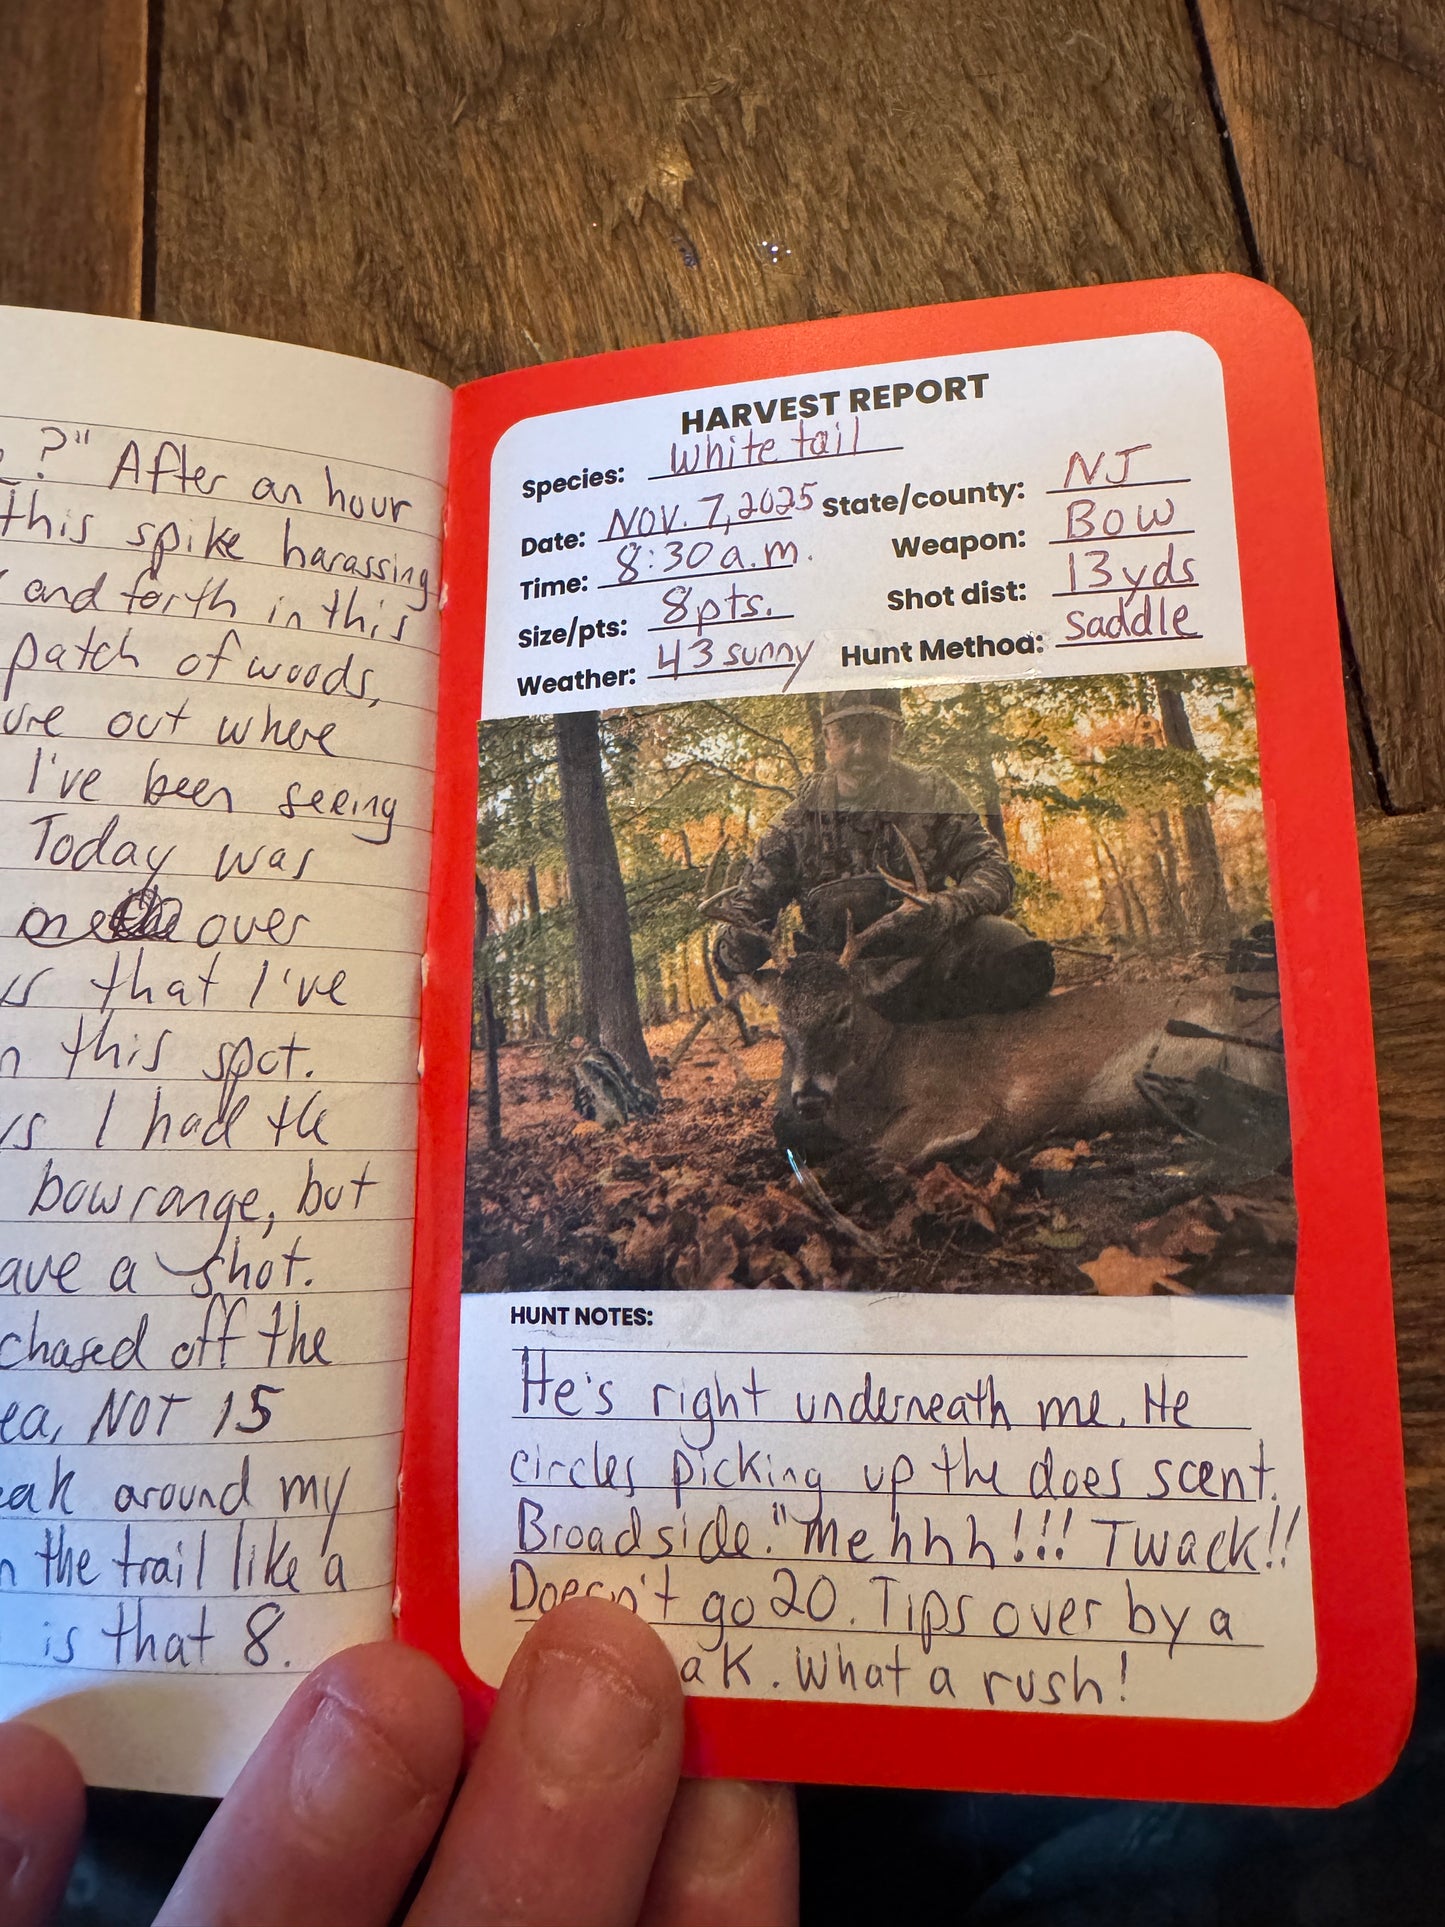 ?" After an hour
this spike harassing
and forth in this
patch of woods,
out where
I've been seeing
Today was
one over
that I've
this spot.
I had the
bow range, but
a shot.
chased off the
NOT 15
around my
the trail like a
is that 8.
HARVEST REPORT
Species: white tail
Date: NOV. 7, 2025 State/county: NJ
Time: 8:30 a.m. Weapon: Bow
Size/pts: 8pts. Shot dist: 13yds
Weather: 43 sunny Hunt Method: saddle
HUNT NOTES:
He's right underneath me. He
circles picking up the does scent.
Broadside. "Mehhhh!!! Twack!!
Doesn't go 20. Tips over by a
What a rush!